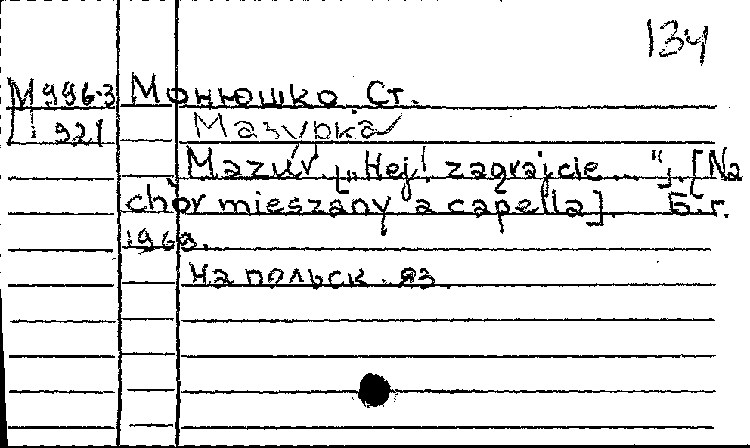 134
М 996-3 Монюшко. Ст.
921 Мазурка
Mazur [„Hej! zagrajcie... “]. [Na
chòr mieszany a capella]. Б.г.
1969.
На польск. яз.